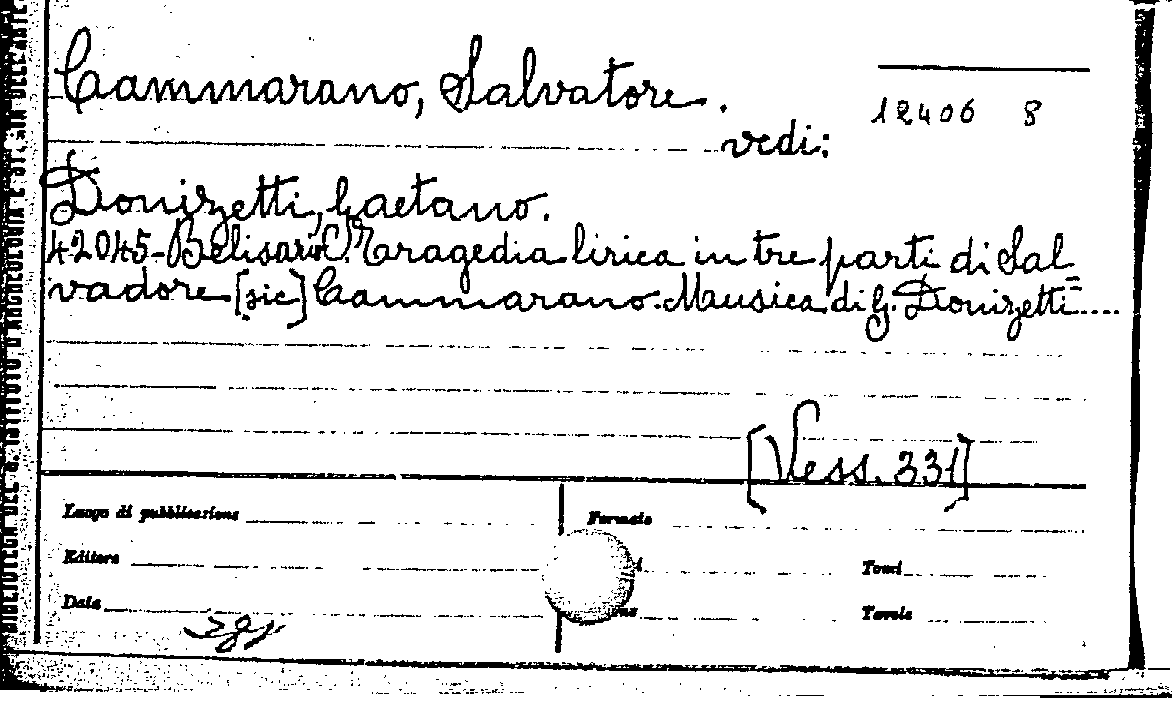 Cammarano, Salvatore.
12406 8
vedi:
Donizetti, Gaetano.
42045-Belisario. Tragedia lirica in tre parti di Sal=
vadore [sic] Cammarano. Mausica di G. Donizetti....
[Vess. 331]
Luogo di pubblicazione
Formato
Editore
Tomi
Data
Tavole
BIBLIOTECA DEL R. ISTITUTO D'ARCHEOLOGIA E ST. DELL'ARTE